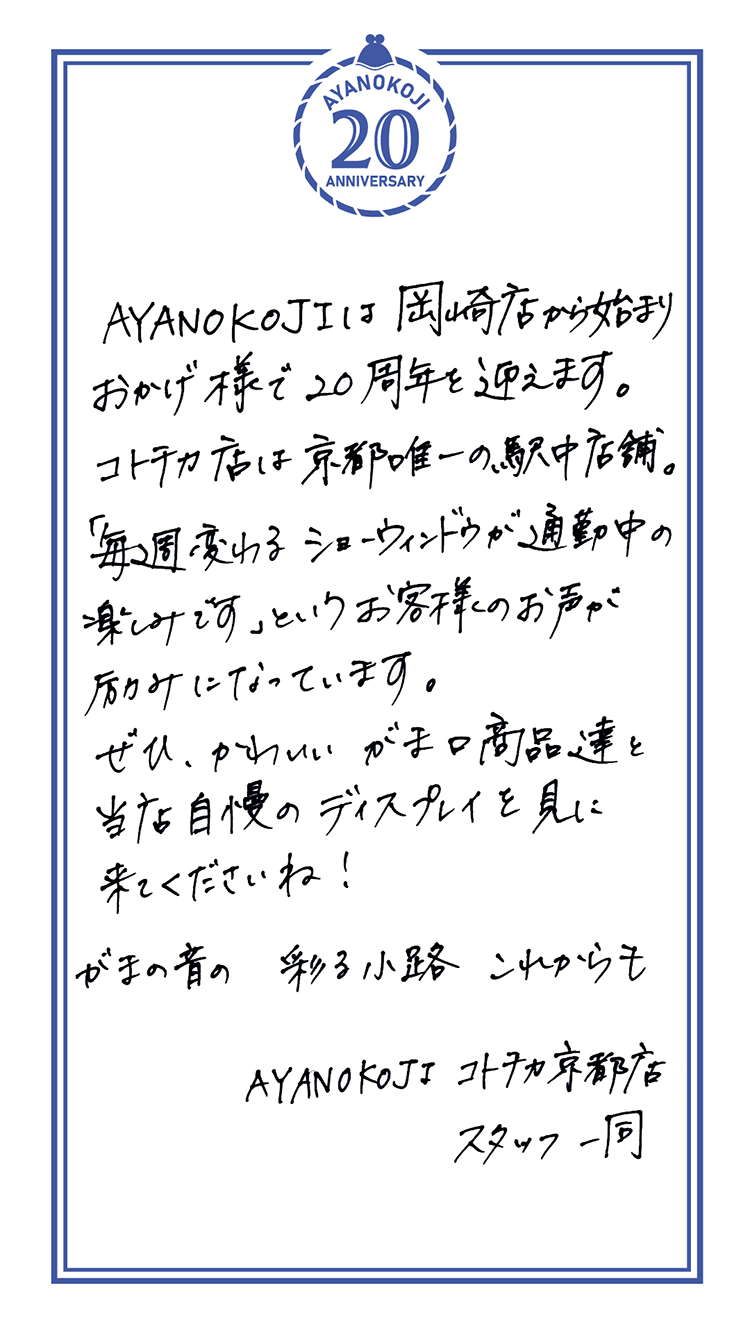 AYANOKOJI
20
ANNIVERSARY
AYANOKOJIは岡崎店から始まり
おかげ様で20周年を迎えます。
コトチカ店は京都唯一の駅中店舗。
「毎週変わるショーウィンドウが通勤中の
楽しみです」というお客様のお声が
励みになっています。
ぜひ、かわいいがま口商品達と
当店自慢のディスプレイを見に
来てくださいね！
がまの音の　彩る小路　これからも
AYANOKOJI コトチカ京都店
スタッフ一同